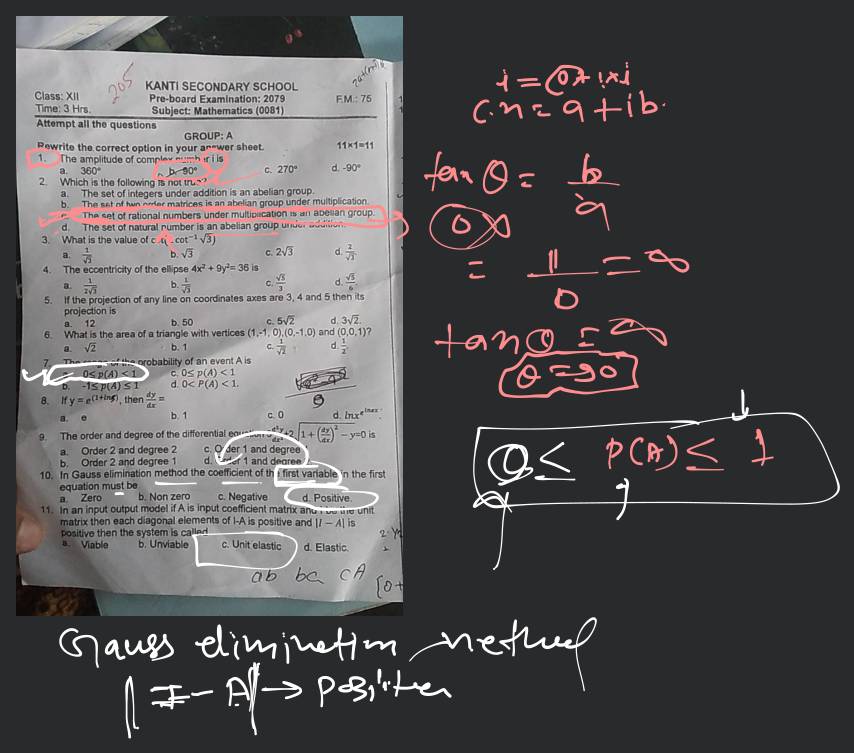 205
KANTI SECONDARY SCHOOL
Class: XII Pre-board Examination: 2079 F.M.: 75
Time: 3 Hrs. Subject: Mathematics (0081)
Attempt all the questions
GROUP: A
Rewrite the correct option in your answer sheet. 11×1=11
1. The amplitude of complex number i is
a. 360° b. 90° c. 270° d. -90°
2. Which is the following is not true?
a. The set of integers under addition is an abelian group.
b. The set of two order matrices is an abelian group under multiplication.
c. The set of rational numbers under multiplication is an abelian group.
d. The set of natural number is an abelian group under addition.
3. What is the value of cot⁻¹ √3)
a. 1/√3 b. √3 c. 2√3 d. 2/√3
4. The eccentricity of the ellipse 4x² + 9y² = 36 is
a. 1/2√3 b. 1/√3 c. √5/3 d. √5/6
5. If the projection of any line on coordinates axes are 3, 4 and 5 then its
projection is
a. 12 b. 50 c. 5√2 d. 3√2.
6. What is the area of a triangle with vertices (1,-1, 0),(0,-1,0) and (0,0,1)?
a. √2 b. 1 c. 1/√2 d. 1/2
7. The of the probability of an event A is
a. 0≤ p(A) < 1 c. 0≤ p(A) < 1
b. -1≤ p(A) ≤ 1 d. 0< P(A) < 1.
8. If y = e^(1+lng), then dy/dx =
a. e b. 1 c. 0 d. lnx
9. The order and degree of the differential equation d²y/dx² +2 √1 + (dy/dx)² − y=0 is
a. Order 2 and degree 2 c. Order 1 and degree
b. Order 2 and degree 1 d. Order 1 and degree
10. In Gauss elimination method the coefficient of the first variable in the first
equation must be
a. Zero b. Non zero c. Negative d. Positive.
11. In an input output model if A is input coefficient matrix and I be the unit
matrix then each diagonal elements of I-A is positive and |I − A| is
positive then the system is called
a. Viable b. Unviable c. Unit elastic d. Elastic.
ab bc CA
i = 0+1×i
c.n = a + ib
tan θ = b/a
= 1/0 = ∞
tan θ = ∞
θ = 90°
0 ≤ P(A) ≤ 1
Gauss elimination method
|I - A| → Positive